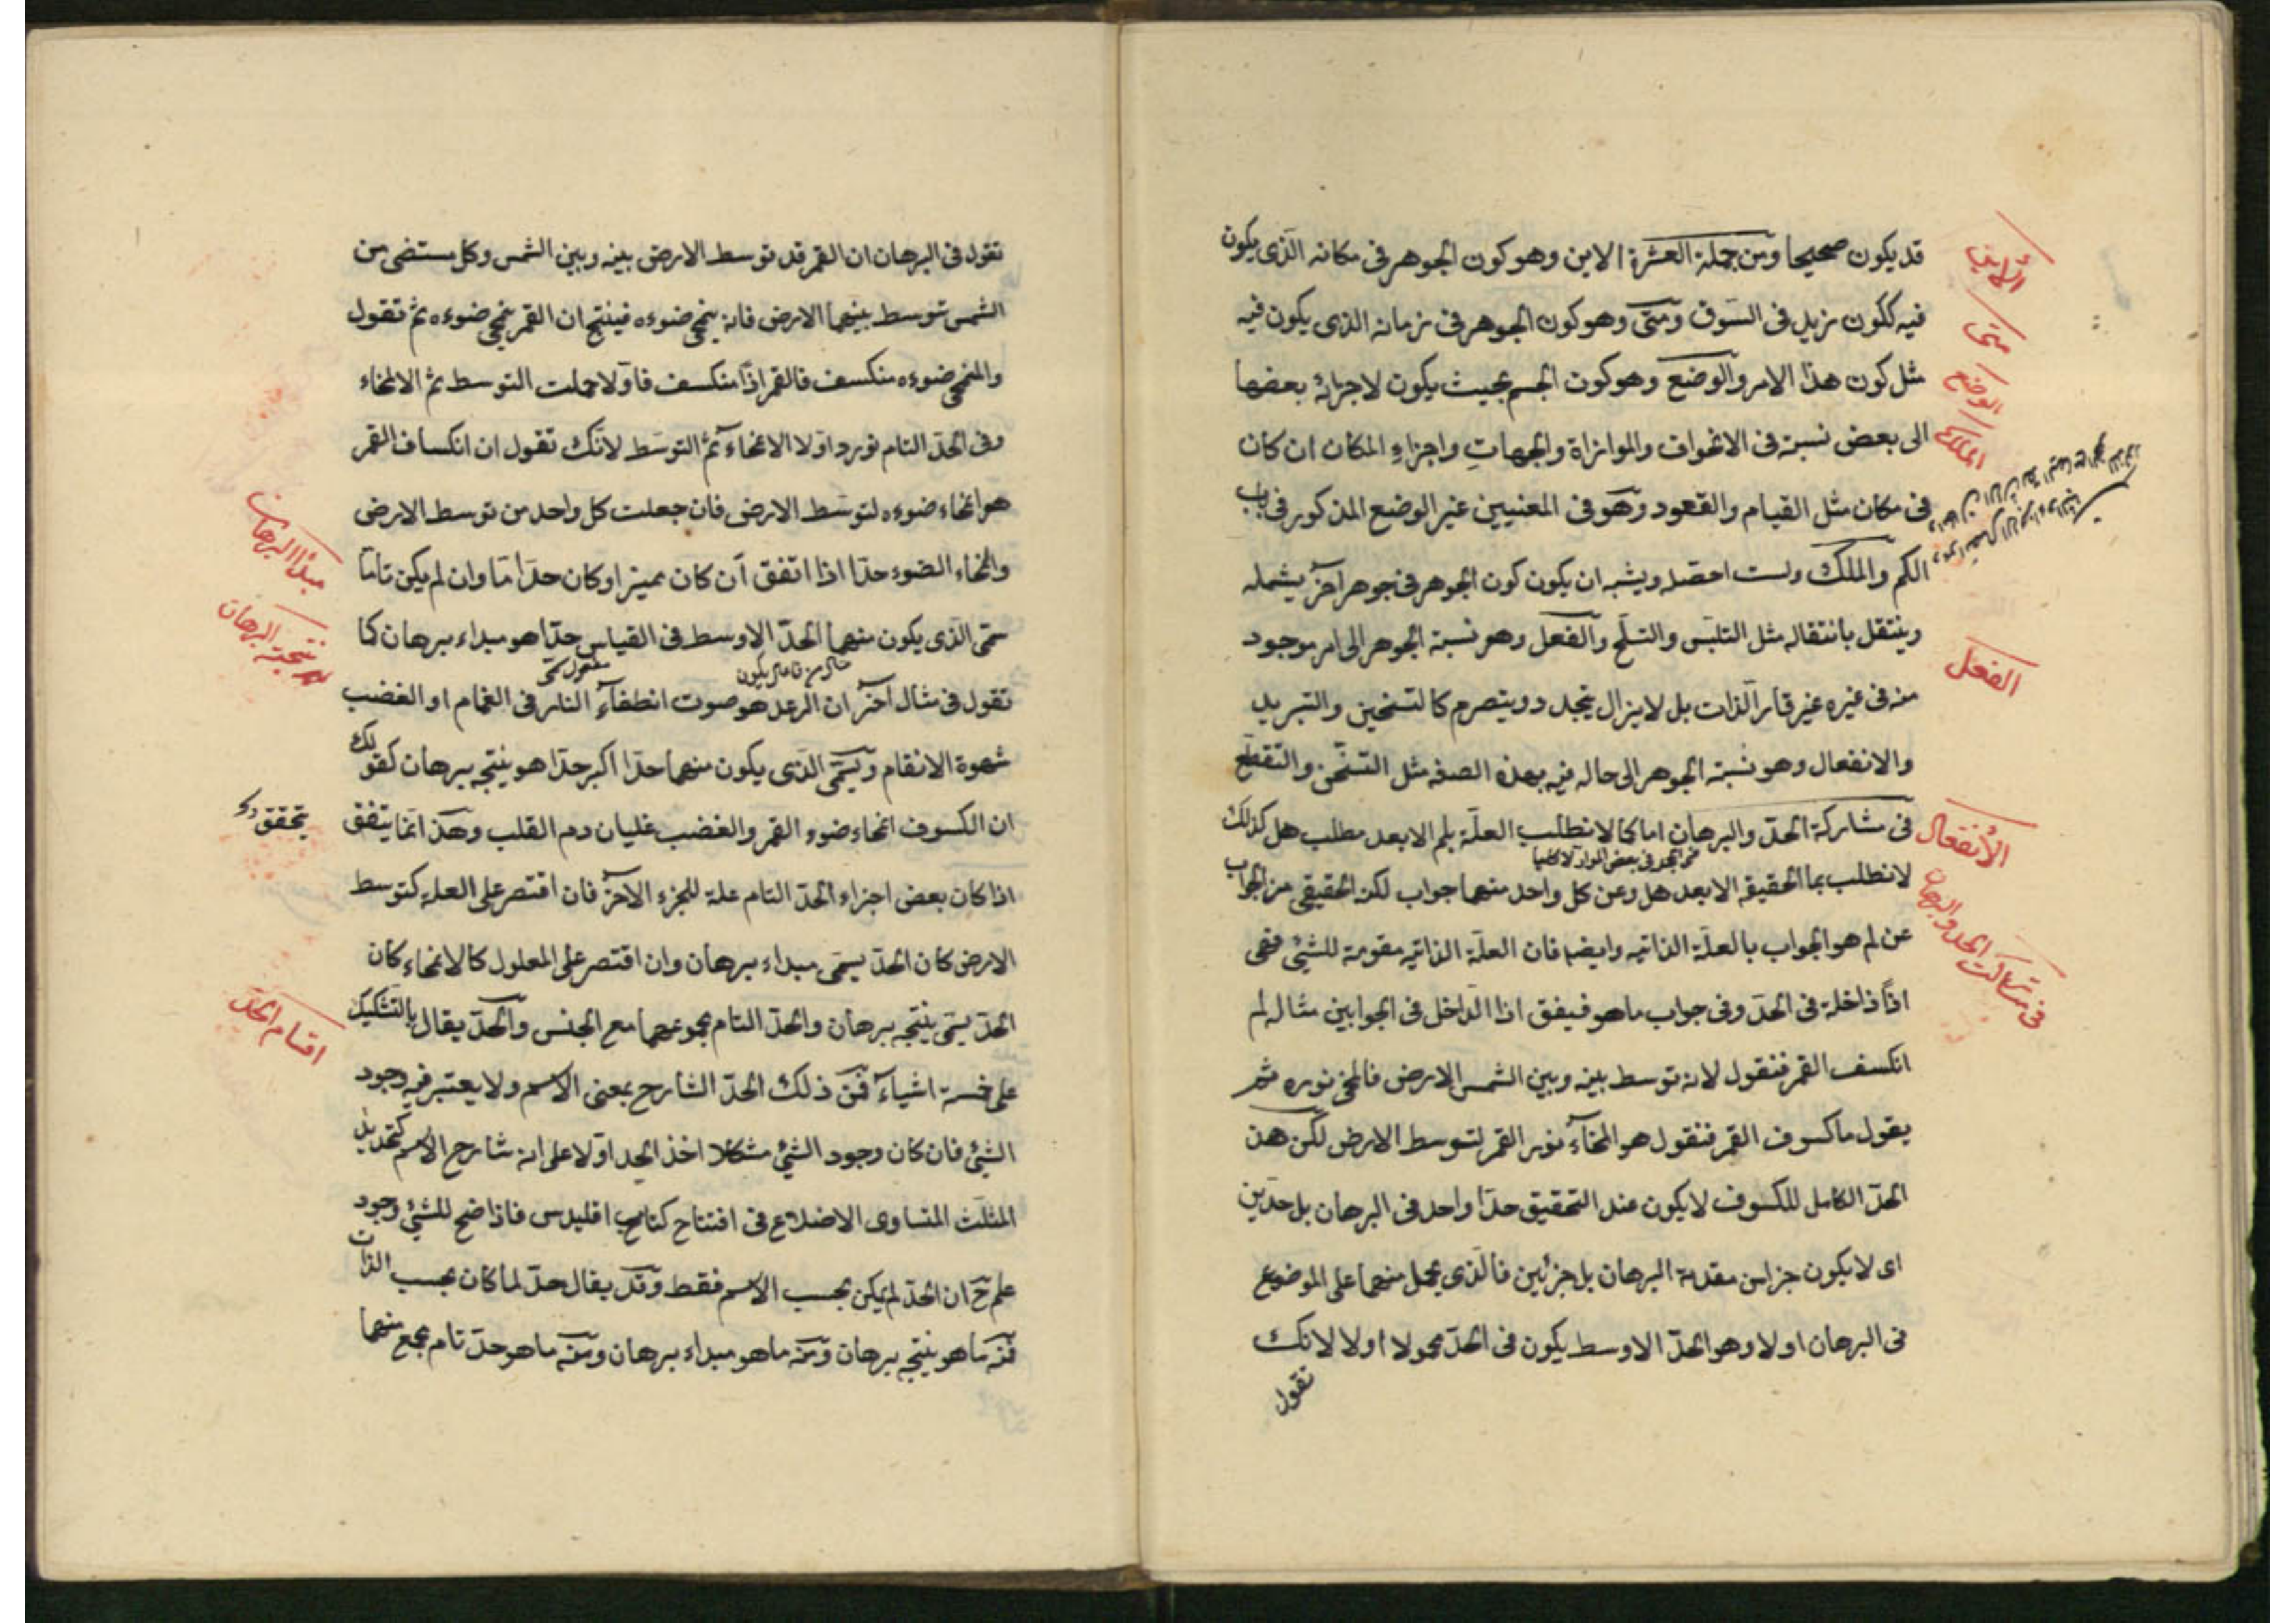 قد يكون صحيحا ومن جملة العشرة الاين وهو كون الجوهر فى مكانه الذى يكون
فيه ككون زيد فى السوق ومتى وهو كون الجوهر فى زمانه الذى يكون فيه
مثل كون هذا الامر والوضع وهو كون الجسم بحيث يكون لاجزائه بعضها
الى بعض نسبة فى الانحراف والموازاة والجهات واجزاء المكان ان كان
فى مكان مثل القيام والقعود وهو فى المعنيين غير الوضع المذكور فى باب
الكم والملك ولست احصله ويشبه ان يكون كون الجوهر فى جوهر آخر يشمله
وينتقل بانتقاله مثل التلبس والتسلح والفعل وهو نسبة الجوهر الى امر موجود
منه فى غيره غير قار الذات بل لا يزال يتجدد ويتصرم كالتسخين والتبريد
والانفعال وهو نسبة الجوهر الى حاله فيه بهذه الصفه مثل التسخن والتقطع
فى مشاركة الحد والبرهان اما كما لا نطلب العلة بلم الا بعد مطلب هل كذلك
لا نطلب بما الحقيقه الا بعد هل وعن كل واحد منهما جواب لكن الحقيقى من الجواب
عن لم هو الجواب بالعلة الذاتيه وايضا فان العلة الذاتيه مقومة للشئ فهى
اذا داخلة فى الحد وفى جواب ما هو فيفق اذا الداخل فى الجوابين مثاله لم
انكسف القمر فنقول لانه توسط بينه وبين الشمس الارض فانمحى نوره ثم
يقول ما كسوف القمر فنقول هو انمحاء نور القمر لتوسط الارض لكن هذ
الحد الكامل للكسوف لا يكون عند التحقيق حدا واحد فى البرهان بل حدين
اى لا يكون جزا من مقدمة البرهان بل جزئين فالذى يحمل منهما على الموضوع
فى البرهان اولا وهو الحد الاوسط يكون فى الحد محمولا اولا لانك
تقول
الأين
متى
الوضع
الملك
الفعل
الأنفعال
فى مشاركت الحد والبرهان
تقول فى البرهان ان القمر قد توسط الارض بينه وبين الشمس وكل مستضى من
الشمس توسط بينهما الارض فانه ينمحى ضوءه فينتج ان القمر ينمحى ضوءه ثم تقول
والمنمحى ضوءه منكسف فالقمر اذا منكسف فاولا حملت التوسط ثم الانمحاء
وفى الحد التام تورد اولا الانمحاء ثم التوسط لانك تقول ان انكساف القمر
هو انمحاء ضوءه لتوسط الارض فان جعلت كل واحد من توسط الارض
وانمحاء الضوء حدا اذا اتفق ان كان مميزا وكان حدا ما وان لم يكن تاما
سمى الذى يكون منهما الحد الاوسط فى القياس حدا هو مبداء برهان كما
تقول فى مثال آخر ان الرعد هو صوت انطفاء النار فى الغمام او الغضب
شهوة الانقام ويسمى الذى يكون منهما حدا اكبر حدا هو نتيجه برهان كقولك
ان الكسوف انمحاء ضوء القمر والغضب غليان دم القلب وهذا انما يتفق
اذا كان بعض اجزاء الحد التام علة للجزء الاخر فان اقتصر على العله كتوسط
الارض كان الحد يسمى مبداء برهان وان اقتصر على المعلول كالانمحاء كان
الحد يسمى نتيجه برهان والحد التام مجموعهما مع الجنس والحد يقال بالتشكيك
على خمسة اشياء فمن ذلك الحد الشارح بمعنى الاسم ولا يعتبر فيه وجود
الشئ فان كان وجود الشئ مشكلا اخذ الحد اولا على انه شارح الاسم كتحديد
المثلث المتساوى الاضلاع فى افتتاح كتاب اقليدس فاذا ضح للشئ وجود
علم ح ان الحد لم يكن بحسب الاسم فقط وقد يقال حد لما كان بحسب الذات
فمنه ما هو نتيجه برهان ومنه ما هو مبداء برهان ومنه ما هو حد تام مجمع منهما
مبدأ البرهان
نتيجته البرهان
يتحقق
اقسام الحد